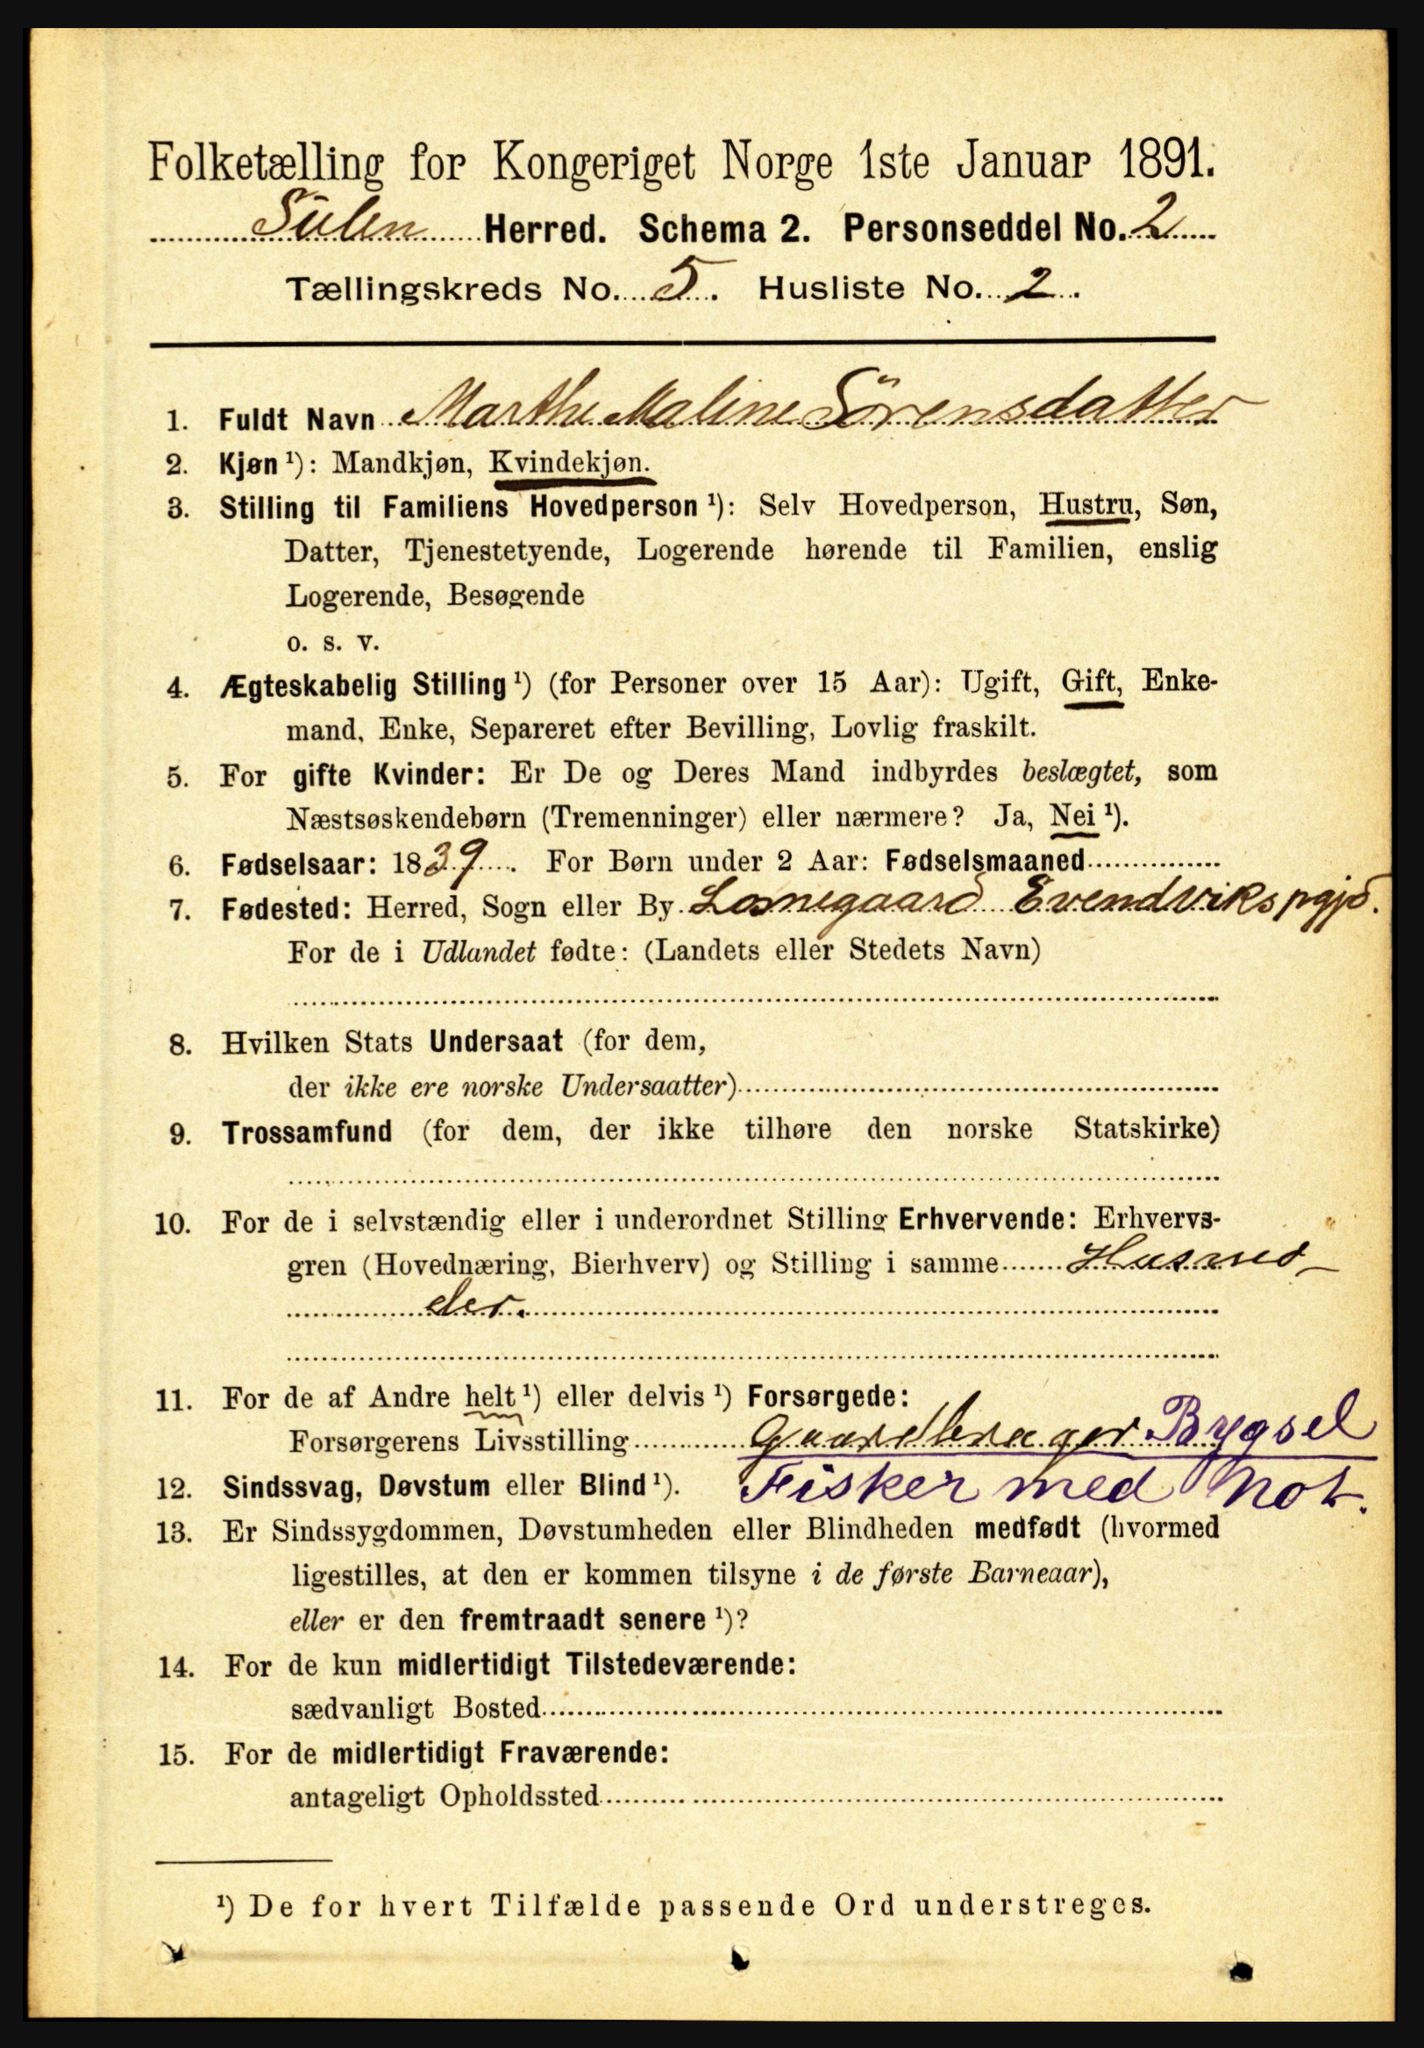 Folketælling for Kongeriget Norge 1ste Januar 1891.
Sulen Herred. Schema 2. Personseddel No. 2
Tællingskreds No. 5. Husliste No. 2.
1. Fuldt Navn Marthe Maline Sörensdatter
2. Kjøn ¹): Mandkjøn, Kvindekjøn.
3. Stilling til Familiens Hovedperson ¹): Selv Hovedperson, Hustru, Søn,
Datter, Tjenestetyende, Logerende hørende til Familien, enslig
Logerende, Besøgende
o. s. v.
4. Ægteskabelig Stilling ¹) (for Personer over 15 Aar): Ugift, Gift, Enke-
mand, Enke, Separeret efter Bevilling, Lovlig fraskilt.
5. For gifte Kvinder: Er De og Deres Mand indbyrdes beslægtet, som
Næstsøskendebørn (Tremenninger) eller nærmere? Ja, Nei ¹).
6. Fødselsaar: 1839. For Børn under 2 Aar: Fødselsmaaned
7. Fødested: Herred, Sogn eller By Losnegaard Evendvikspgjd.
For de i Udlandet fødte: (Landets eller Stedets Navn)
8. Hvilken Stats Undersaat (for dem,
der ikke ere norske Undersaatter)
9. Trossamfund (for dem, der ikke tilhøre den norske Statskirke)
10. For de i selvstændig eller i underordnet Stilling Erhvervende: Erhvervs-
gren (Hovednæring, Bierhverv) og Stilling i samme Husmo-
der.
11. For de af Andre helt ¹) eller delvis ¹) Forsørgede:
Forsørgerens Livsstilling Gaardbruger Bygsel
12. Sindssvag, Døvstum eller Blind ¹). Fisker med Not.
13. Er Sindssygdommen, Døvstumheden eller Blindheden medfødt (hvormed
ligestilles, at den er kommen tilsyne i de første Barneaar),
eller er den fremtraadt senere ¹)?
14. For de kun midlertidigt Tilstedeværende:
sædvanligt Bosted
15. For de midlertidigt Fraværende:
antageligt Opholdssted
¹) De for hvert Tilfælde passende Ord understreges.